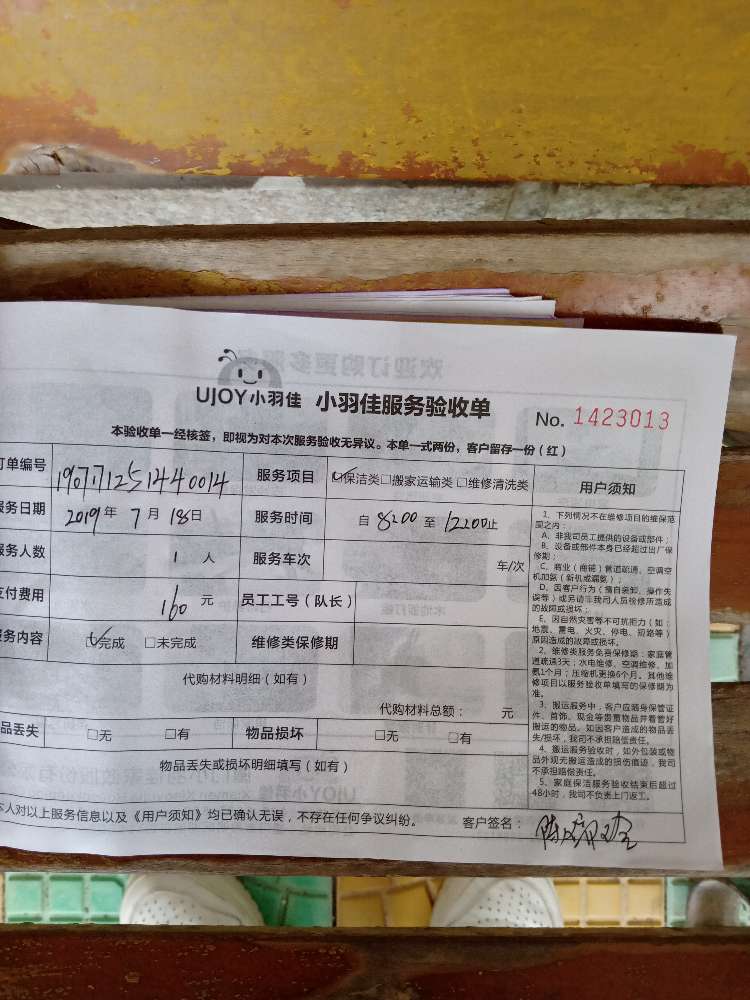 UJOY小羽佳 小羽佳服务验收单 No. 1423013
本验收单一经核签，即视为对本次服务验收无异议。本单一式两份，客户留存一份（红）
订单编号 1907171251440014 服务项目 ☑保洁类□搬家运输类□维修清洗类 用户须知
服务日期 2019年7月18日 服务时间 自8:00至12:00止
服务人数 1人 服务车次 车/次
支付费用 160元 员工工号（队长）
服务内容 ☑完成 □未完成 维修类保修期
代购材料明细（如有）
代购材料总额： 元
品丢失 □无 □有 物品损坏 □无 □有
物品丢失或损坏明细填写（如有）
本人对以上服务信息以及《用户须知》均已确认无误，不存在任何争议纠纷。 客户签名：
1、下列情况不在维修项目的维保范
围之内：
A、非我司员工提供的设备或部件；
B、设备或部件本身已经超过出厂保
修期；
C、商业（商铺）管道疏通、空调空
机加氨（新机或漏氨）；
D、因客户行为（擅自装卸、操作失
误等）或另请非我司人员检修所造成
的故障或损坏；
E、因自然灾害等不可抗拒力（如：
地震、雷电、火灾、停电、短路等）
原因造成的故障或损坏。
2、维修类服务免费保修期：家庭管
道疏通3天；水电维修、空调维修、加
氨1个月；压缩机更换6个月。其他维
修项目以服务验收单填写的保修期为
准。
3、搬运服务中，客户应随身保管证
件、首饰、现金等贵重物品并看管好
搬运的物品。如因客户造成的物品丢
失/损坏，我司不承担赔偿责任。
4、搬运服务验收时，如外包装或物
品外观无搬运造成的损伤痕迹，我司
不承担赔偿责任。
5、家庭保洁服务验收结束后超过
48小时，我司不负责上门返工。